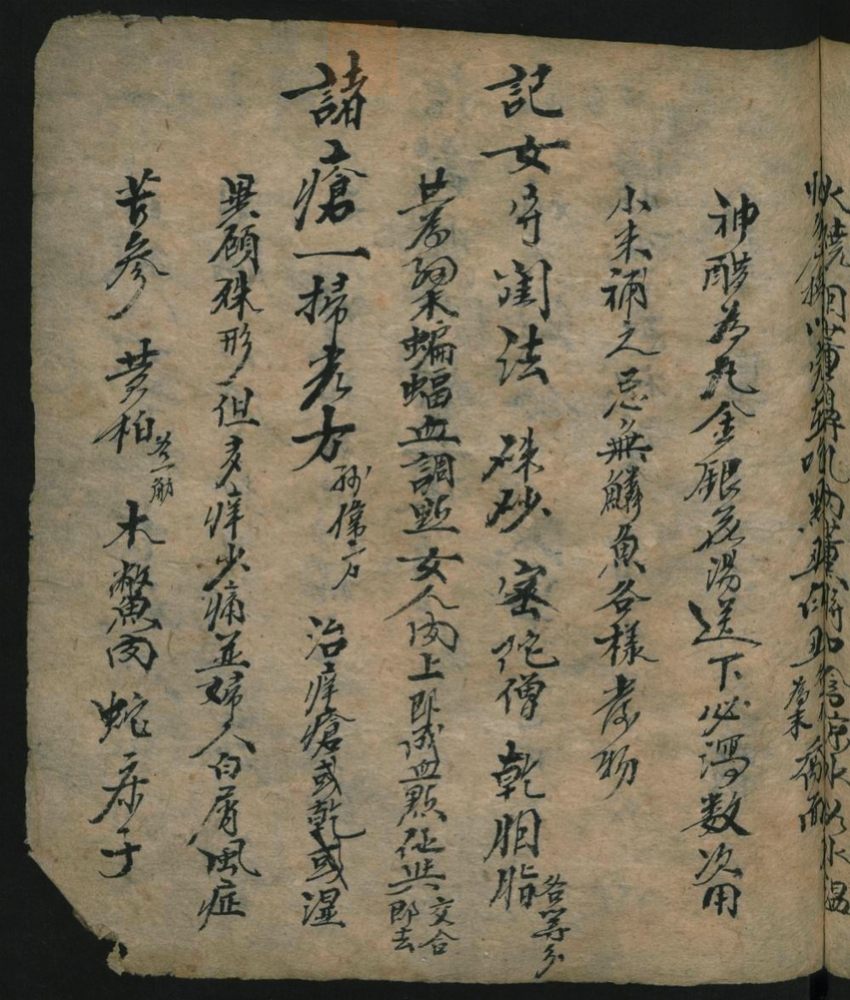 神醋為丸金銀花湯送下必瀉数次用
小米補之忌無鱗魚各樣發物
記女守閨法 硃砂 密陀僧 乾胭脂各等分
共為細末蝙蝠血調點女人肉上即成血點徔與交合即去
諸瘡一掃光方 孙偉方 治痒瘡或乾或湿
異顔殊形但多痒少痛並婦人白屑風症
苦參 黄柏各一觔 木鱉肉 蛇床子